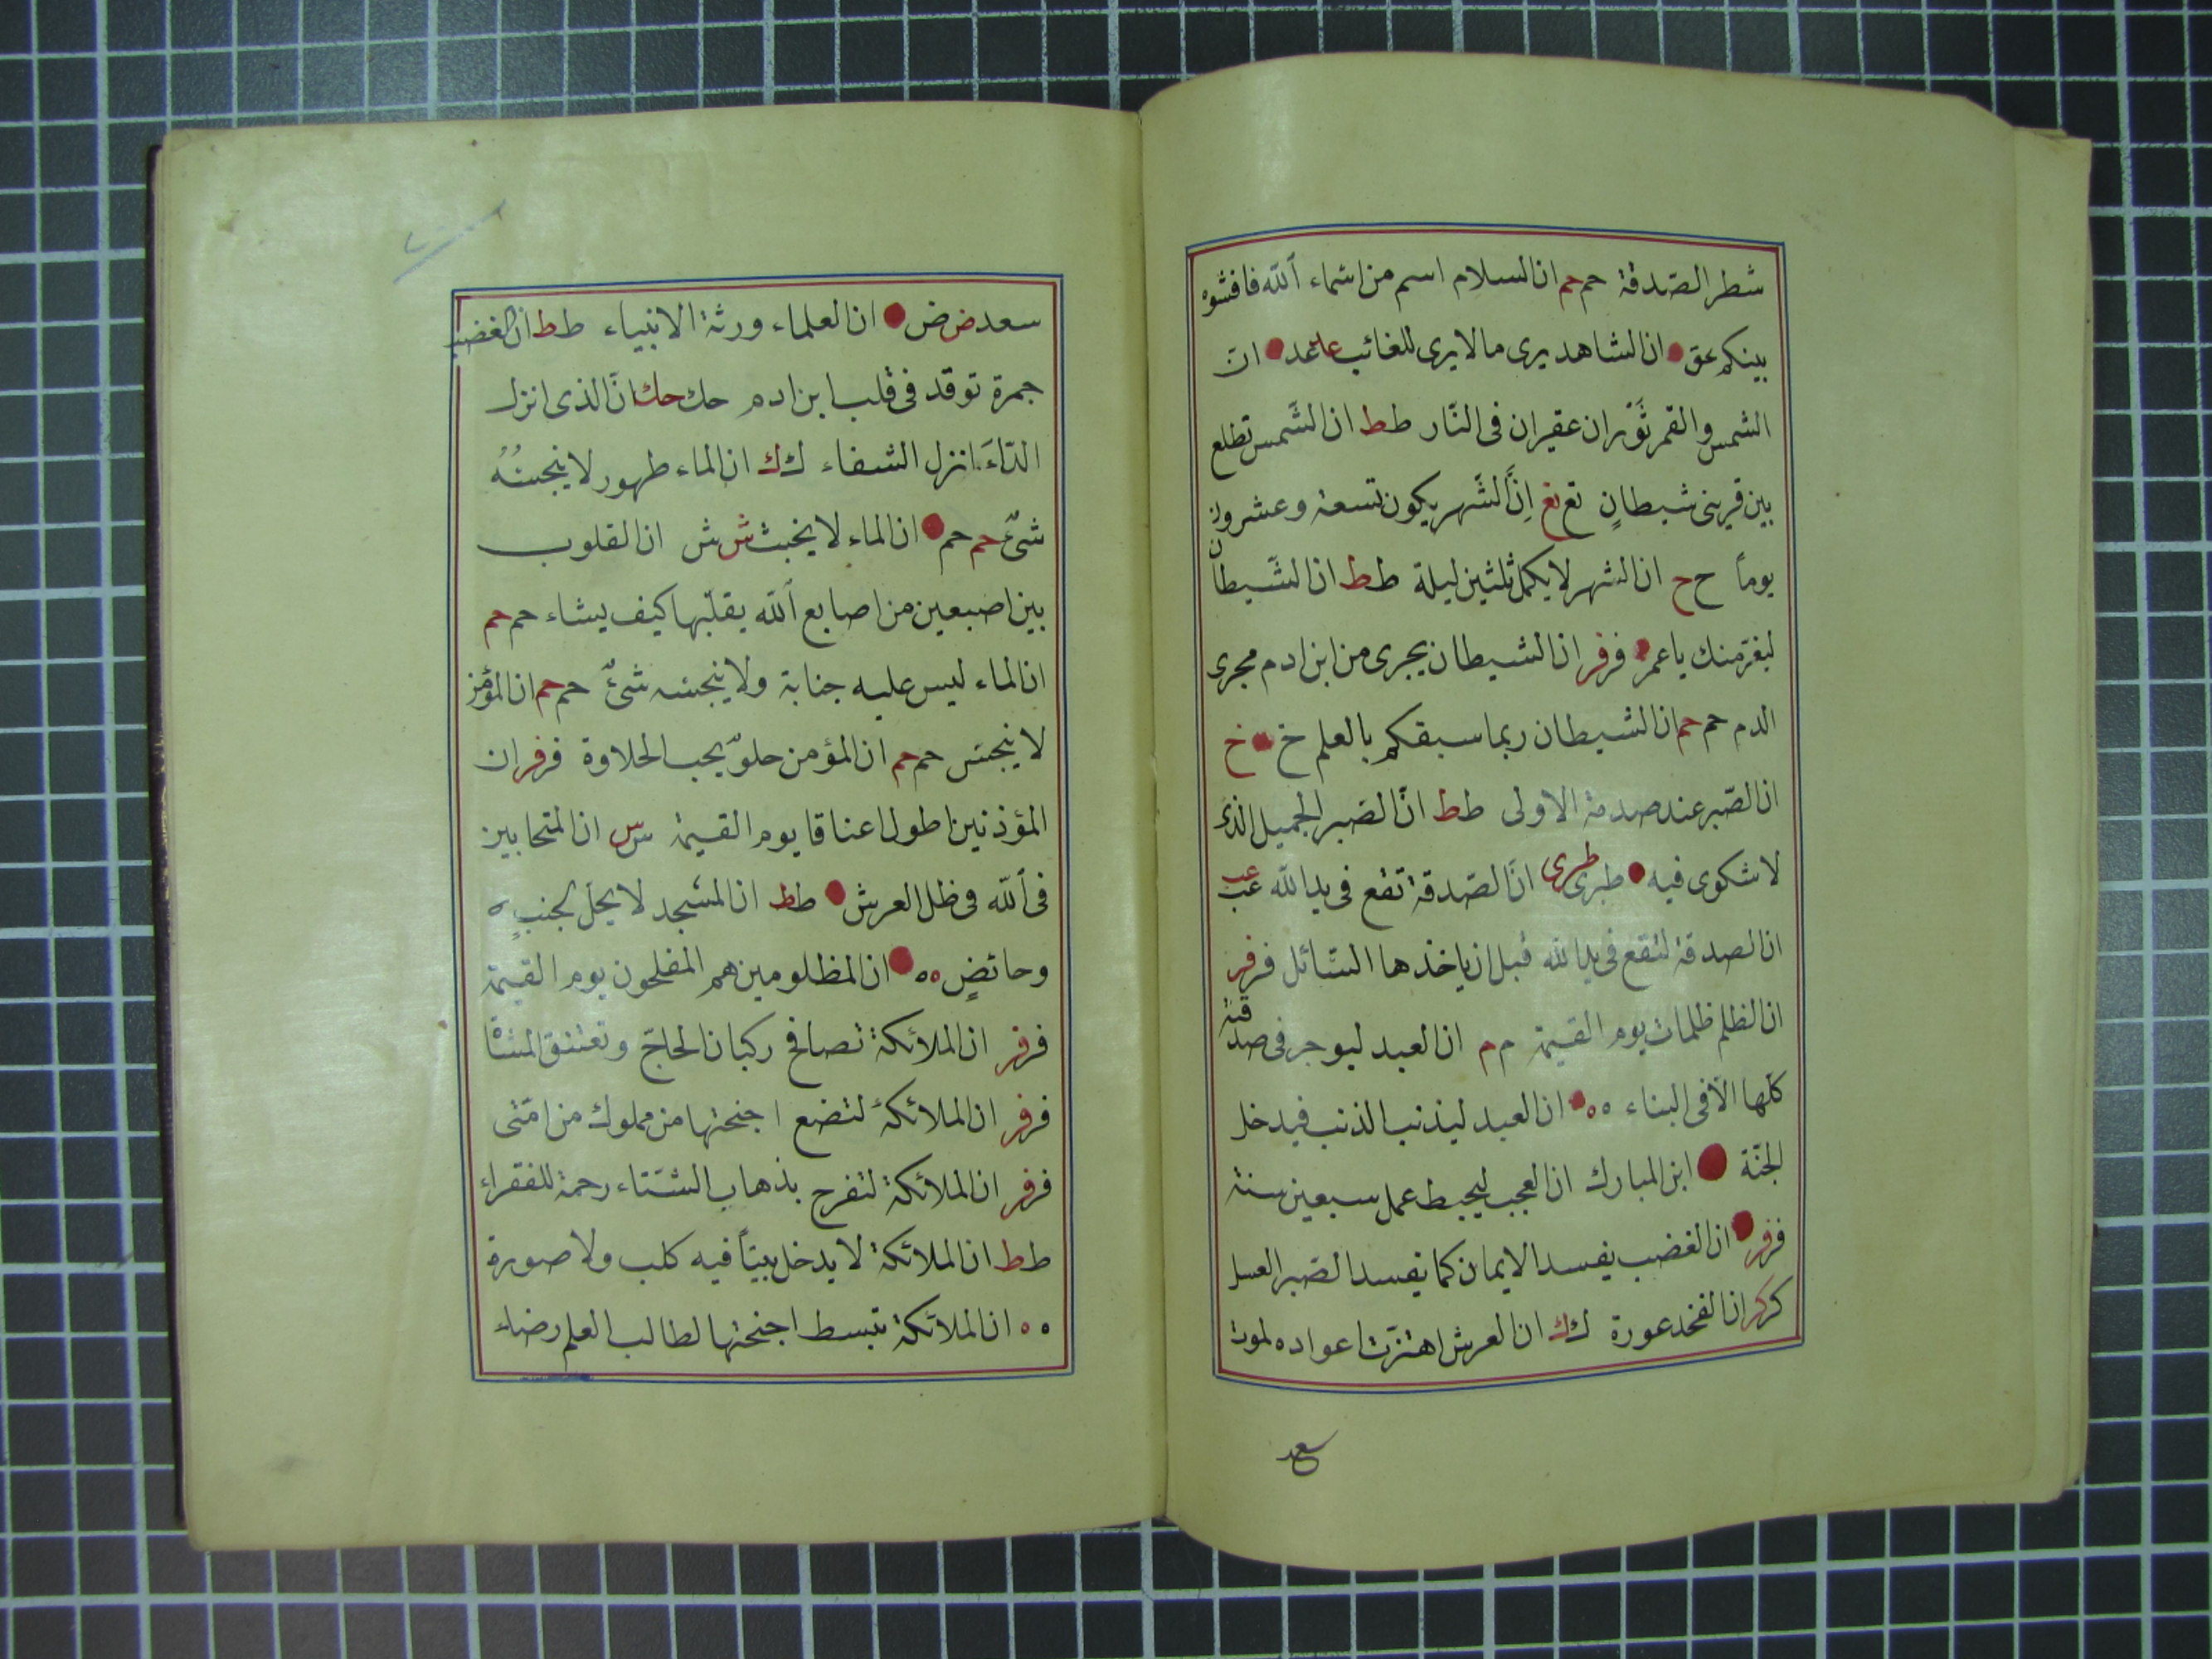 شطر الصّدقة حم حم ان السلام اسم من اسماء الله فافشوه
بينكم عق ان الشاهد يرى ما لا يرى للغائب عد عد ان
الشمس والقمر ثَوْران عقيران فى النّار ط ط ان الشَّمس تطلع
بين قرينى شيطانٍ تغ تغ اِنَّ الشَّهر يكون تسعة وعشرون
يوماً ح ح ان الشهر لا يكمل ثلثين ليلة ط ط ان الشَّيطان
ليفرّ منك يا عمر فر فر ان الشيطان يجرى من ابن ادم مجرى
الدم حم حم ان الشيطان ربما سبقكم بالعلم خ خ
ان الصّبر عند صدمة الاولى ط ط انّ الصّبر الجميل الذى
لا شكوى فيه طبرى طبرى انّ الصّدقة تقع فى يد الله عب عب
ان الصدقة لتقع فى يد الله قبل ان ياخذها السّائل فر فر
ان الظلم ظلمات يوم القيمة م م ان العبد ليوجر فى صدقته
كلّها الّا فى البناء ه ه ان العبد ليذنب الذنب فيدخل
الجنّة ابن المبارك ان العجب ليحبط عمل سبعين سنة
فر فر ان الغضب يفسد الايمان كما يفسد الصّبر العسل
كر كر ان الفخذ عورة ك ك ان العرش اهتزّت اعواده لموت
سعد
سعد ض ض ان العلماء ورثة الانبياء ط ط ان الغضب
جمرة توقد فى قلب ابن ادم حك حك انَّ الذى انزل
الدّاءَ انزل الشفاء ك ك ان الماء طهور لا ينجسُهُ
شىٌٔ حم حم ان الماء لا يخبث ش ش ان القلوب
بين اصبعين من اصابع الله يقلّبها كيف يشاء حم حم
ان الماء ليس عليه جنابة ولا ينجسه شىٌٔ حم حم ان المؤمن
لا ينجس حم حم ان المؤمن حلوٌ يحب الحلاوة فر فر ان
المؤذنين اطول اعناقا يوم القيمة س س ان المتحابين
فى الله فى ظل العرش ط ط ان المسجد لا يحلّ لجنبٍ
وحائضٍ ه ه ان المظلومين هم المفلحون يوم القيمة
فر فر ان الملائكة تصافح ركبان الحاجّ وتعتنق المشاة
فر فر ان الملائكة لتضع اجنحتها من مملوك من امّتى
فر فر ان الملائكة لتفرح بذهاب الشتاء رحمة للفقراء
ط ط ان الملائكة لا يدخل بيتاً فيه كلب ولا صورة
ه ه ان الملائكة تبسط اجنحتها لطالب العلم رضاء